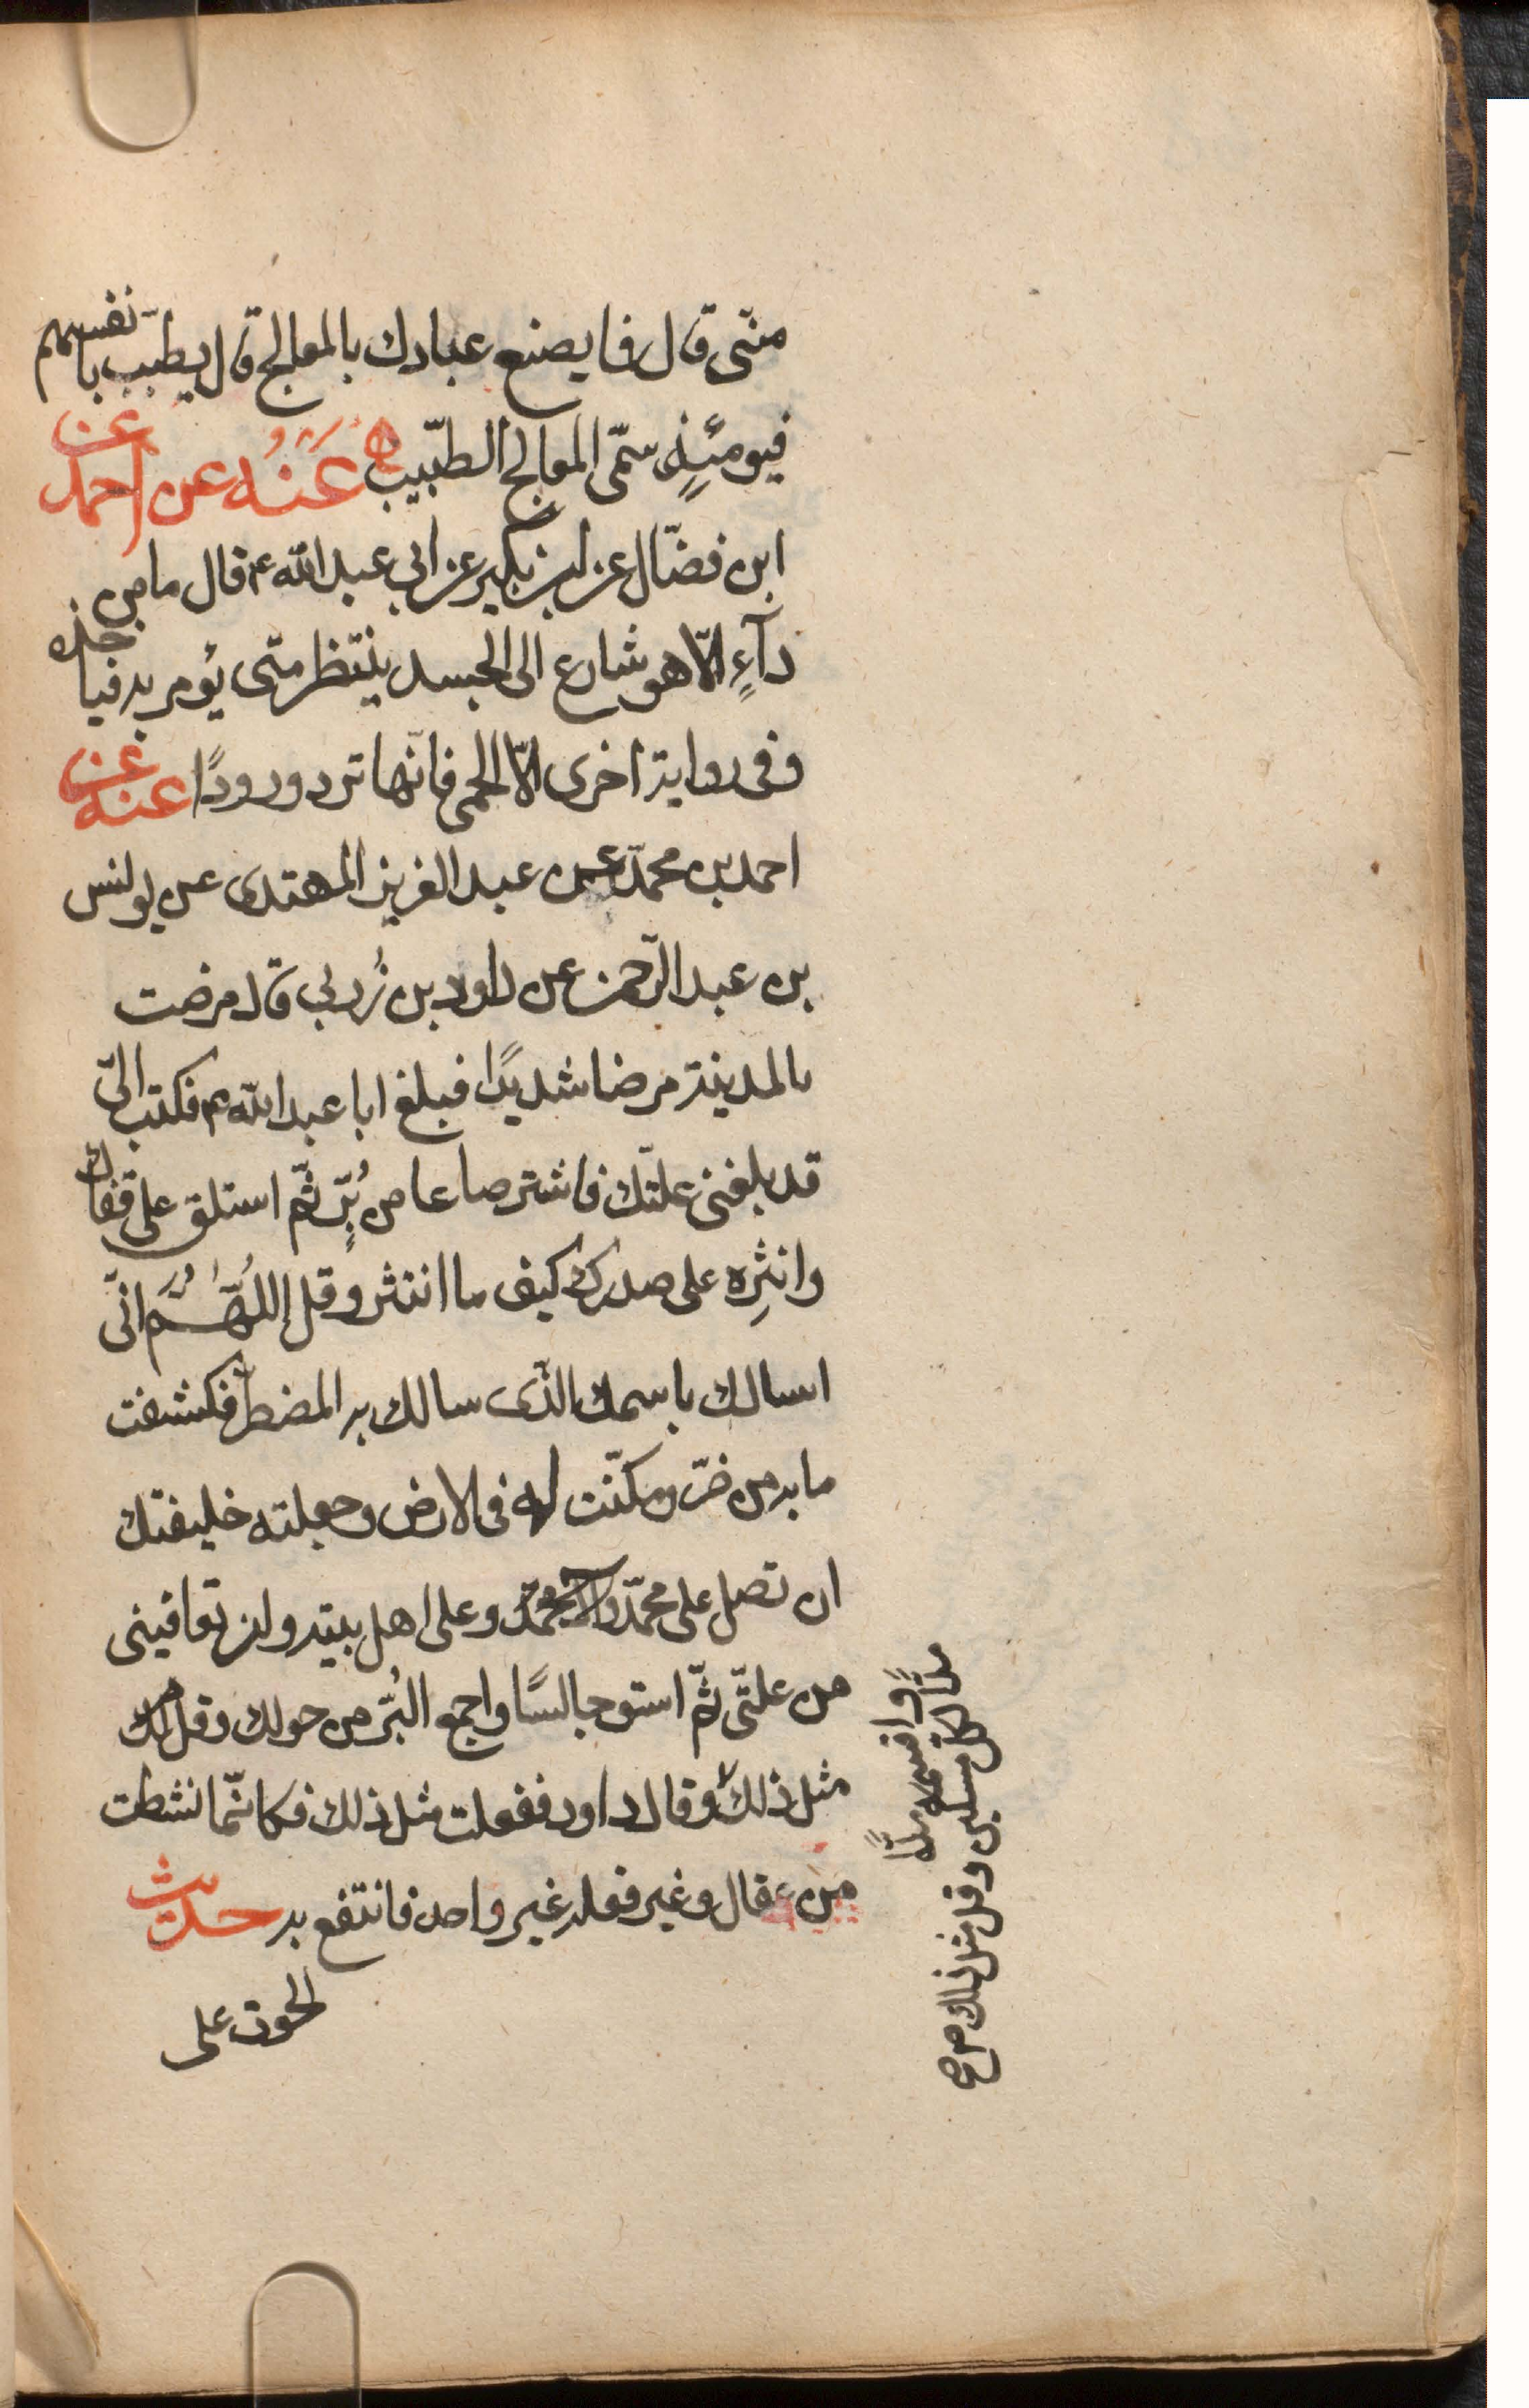 منّى قال فما يصنع عبادك بالمعالج قال يطبّب بانفسهم
فيومئذٍ سمّى المعالج الطّبيب عَنْهُ عن احمد عن
ابن فضّال عن ابن بكير عن ابى عبد الله ع قال ما من
دآءٍ الّا هو شارع الى الجسد ينتظر متى يؤمر به فياخذه
وفى رواية اخرى الّا الحمى فانّها ترد ورودًا عنه عن
احمد بن محمّد عن عبد العزيز المهتدى عن يونس
بن عبد الرّحمن عن داود بن زُربى قال مرضت
بالمدينة مرضا شديدًا فبلغ ابا عبد الله ع فكتب الىّ
قد بلغنى علّتك فاشتر صاعا من بُرٍّ ثمّ استلق على قفاك
وانثِره على صدرك كيف ما انتثر وقل اللّهُمَّ انّى
اسالك باسمك الّذى سالك به المضطرّ فكشفت
ما به من ضرّ ومكّنت له فى الارض وجعلته خليفتك
ان تصلى على محمّد وال محمّد وعلى اهل بيته وان تعافينى
من علّتى ثمّ استو جالسًا واجمع البُرّ من حولك وقل
مثل ذلك وقال داود ففعلت مثل ذلك فكانّما نشطت
من عقال وغير ففعله غير واحد فانتفع به حديث
الحوت على
واقسمه مدًّا
مدًّا لكلّ مسكين وقل مثل ذلك صح